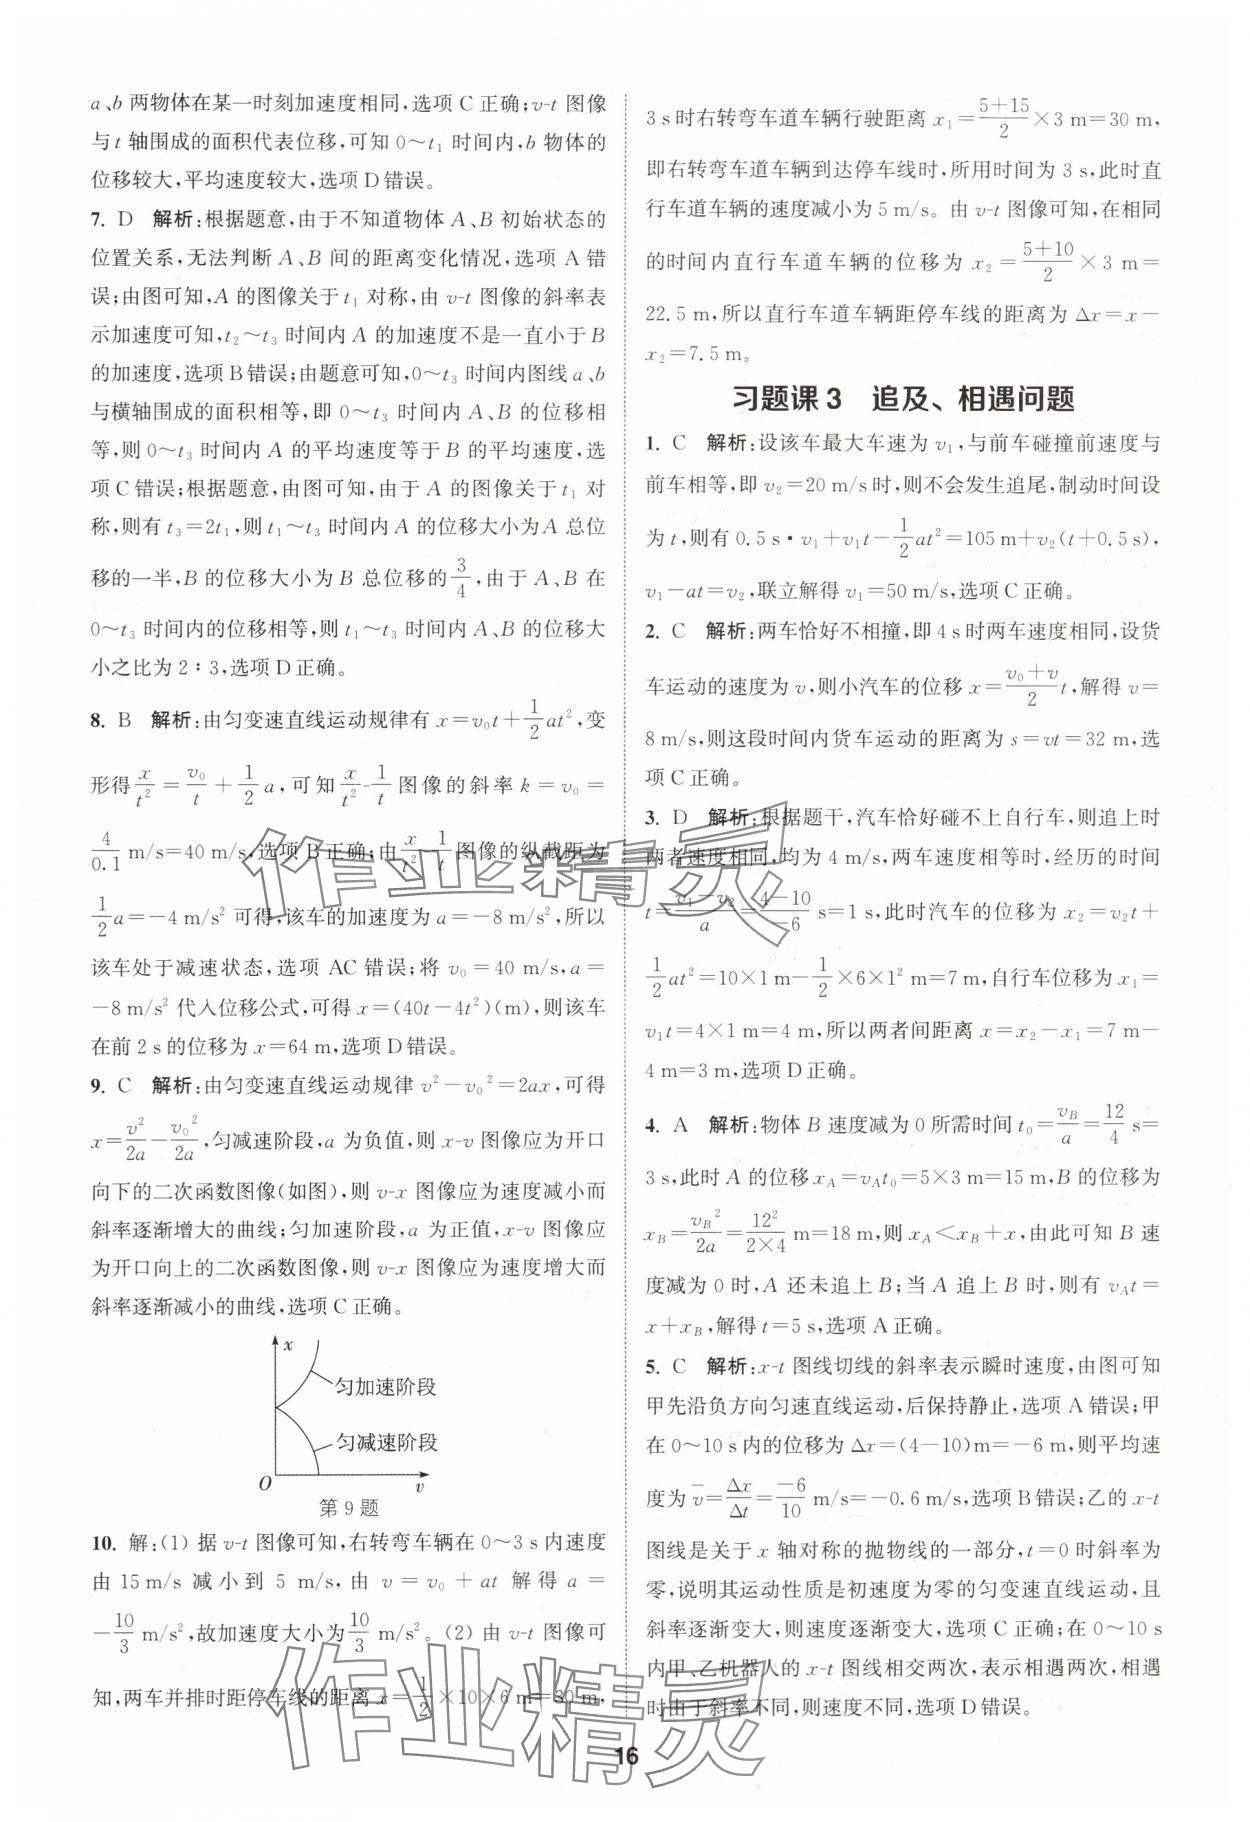 a、b 两物体在某一时刻加速度相同,选项 C 正确;v-t 图像
与 t 轴围成的面积代表位移,可知 0～t₁ 时间内,b 物体的
位移较大,平均速度较大,选项 D 错误。
7. D 解析:根据题意,由于不知道物体 A、B 初始状态的
位置关系,无法判断 A、B 间的距离变化情况,选项 A 错
误;由图可知,A 的图像关于 t₁ 对称,由 v-t 图像的斜率表
示加速度可知,t₂～t₃ 时间内 A 的加速度不是一直小于 B
的加速度,选项 B 错误;由题意可知,0～t₃ 时间内图线 a、b
与横轴围成的面积相等,即 0～t₃ 时间内 A、B 的位移相
等,则 0～t₃ 时间内 A 的平均速度等于 B 的平均速度,选
项 C 错误;根据题意,由图可知,由于 A 的图像关于 t₁ 对
称,则有 t₃=2t₁,则 t₁～t₃ 时间内 A 的位移大小为 A 总位
移的一半,B 的位移大小为 B 总位移的 3/4,由于 A、B 在
0～t₃ 时间内的位移相等,则 t₁～t₃ 时间内 A、B 的位移大
小之比为 2∶3,选项 D 正确。
8. B 解析:由匀变速直线运动规律有 x=v₀t+1/2 at²,变
形得 x/t² = v₀/t + 1/2 a,可知 x/t²-1/t 图像的斜率 k=v₀=
4/0.1 m/s=40 m/s,选项 B 正确;由 x/t²-1/t 图像的纵截距为
1/2 a=-4 m/s² 可得,该车的加速度为 a=-8 m/s²,所以
该车处于减速状态,选项 AC 错误;将 v₀=40 m/s,a=
-8 m/s² 代入位移公式,可得 x=(40t-4t²)(m),则该车
在前 2 s 的位移为 x=64 m,选项 D 错误。
9. C 解析:由匀变速直线运动规律 v²-v₀²=2ax,可得
x=v²/2a-v₀²/2a,匀减速阶段,a 为负值,则 x-v 图像应为开口
向下的二次函数图像(如图),则 v-x 图像应为速度减小而
斜率逐渐增大的曲线;匀加速阶段,a 为正值,x-v 图像应
为开口向上的二次函数图像,则 v-x 图像应为速度增大而
斜率逐渐减小的曲线,选项 C 正确。
x
匀加速阶段
匀减速阶段
O v
第 9 题
10. 解:(1) 据 v-t 图像可知,右转弯车辆在 0～3 s 内速度
由 15 m/s 减小到 5 m/s,由 v=v₀+at 解得 a=
-10/3 m/s²,故加速度大小为 10/3 m/s²。(2) 由 v-t 图像可
知,两车并排时距停车线的距离 x=1/2×10×6 m=30 m,
3 s 时右转弯车道车辆行驶距离 x₁=(5+15)/2×3 m=30 m,
即右转弯车道车辆到达停车线时,所用时间为 3 s,此时直
行车道车辆的速度减小为 5 m/s。由 v-t 图像可知,在相同
的时间内直行车道车辆的位移为 x₂=(5+10)/2×3 m=
22.5 m,所以直行车道车辆距停车线的距离为 Δx=x-
x₂=7.5 m。
习题课 3 追及、相遇问题
1. C 解析:设该车最大车速为 v₁,与前车碰撞前速度与
前车相等,即 v₂=20 m/s 时,则不会发生追尾,制动时间设
为 t,则有 0.5 s·v₁+v₁t-1/2 at²=105 m+v₂(t+0.5 s),
v₁-at=v₂,联立解得 v₁=50 m/s,选项 C 正确。
2. C 解析:两车恰好不相撞,即 4 s 时两车速度相同,设货
车运动的速度为 v,则小汽车的位移 x=(v₀+v)/2 t,解得 v=
8 m/s,则这段时间内货车运动的距离为 s=vt=32 m,选
项 C 正确。
3. D 解析:根据题干,汽车恰好碰不上自行车,则追上时
两者速度相同,均为 4 m/s,两车速度相等时,经历的时间
t=(v₁-v₂)/a=(4-10)/-6 s=1 s,此时汽车的位移为 x₂=v₂t+
1/2 at²=10×1 m-1/2×6×1² m=7 m,自行车位移为 x₁=
v₁t=4×1 m=4 m,所以两者间距离 x=x₂-x₁=7 m-
4 m=3 m,选项 D 正确。
4. A 解析:物体 B 速度减为 0 所需时间 t₀=v_B/a=12/4 s=
3 s,此时 A 的位移 x_A=v_At₀=5×3 m=15 m,B 的位移为
x_B=v_B²/2a=12²/(2×4) m=18 m,则 x_A<x_B+x,由此可知 B 速
度减为 0 时,A 还未追上 B;当 A 追上 B 时,则有 v_At=
x+x_B,解得 t=5 s,选项 A 正确。
5. C 解析:x-t 图线切线的斜率表示瞬时速度,由图可知
甲先沿负方向匀速直线运动,后保持静止,选项 A 错误;甲
在 0～10 s 内的位移为 Δx=(4-10)m=-6 m,则平均速
度为 v̄=Δx/Δt=-6/10 m/s=-0.6 m/s,选项 B 错误;乙的 x-t
图线是关于 x 轴对称的抛物线的一部分,t=0 时斜率为
零,说明其运动性质是初速度为零的匀变速直线运动,且
斜率逐渐变大,则速度逐渐变大,选项 C 正确;在 0～10 s
内甲、乙机器人的 x-t 图线相交两次,表示相遇两次,相遇
时由于斜率不同,则速度不同,选项 D 错误。
作业精灵
作业精灵
16